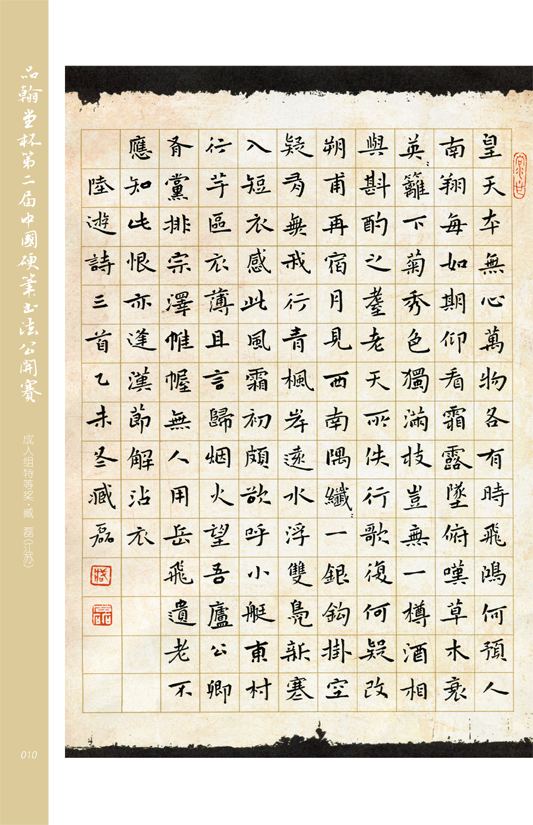 皇天本無心萬物各有時飛鴻何預人
南翔每如期仰看霜露墜俯嘆草木衰
英〻籬下菊秀色獨滿枝豈無一樽酒相
與斟酌之耋老天所佚行歌復何疑改
朔甫再宿月見西南隅纖〻一銀鈎掛空
疑有無戒行青楓岸遠水浮雙鳧新寒
入短衣感此風霜初頗欲呼小艇東村
行芋區衣薄且言歸烟火望吾廬公卿
有黨排宗澤帷幄無人用岳飛遺老不
應知此恨亦逢漢節解沾衣
陸遊詩三首乙未冬臧磊
品翰堂杯第二届中國硬筆书法公開賽
成人组特等奖·臧 磊(江苏)
010